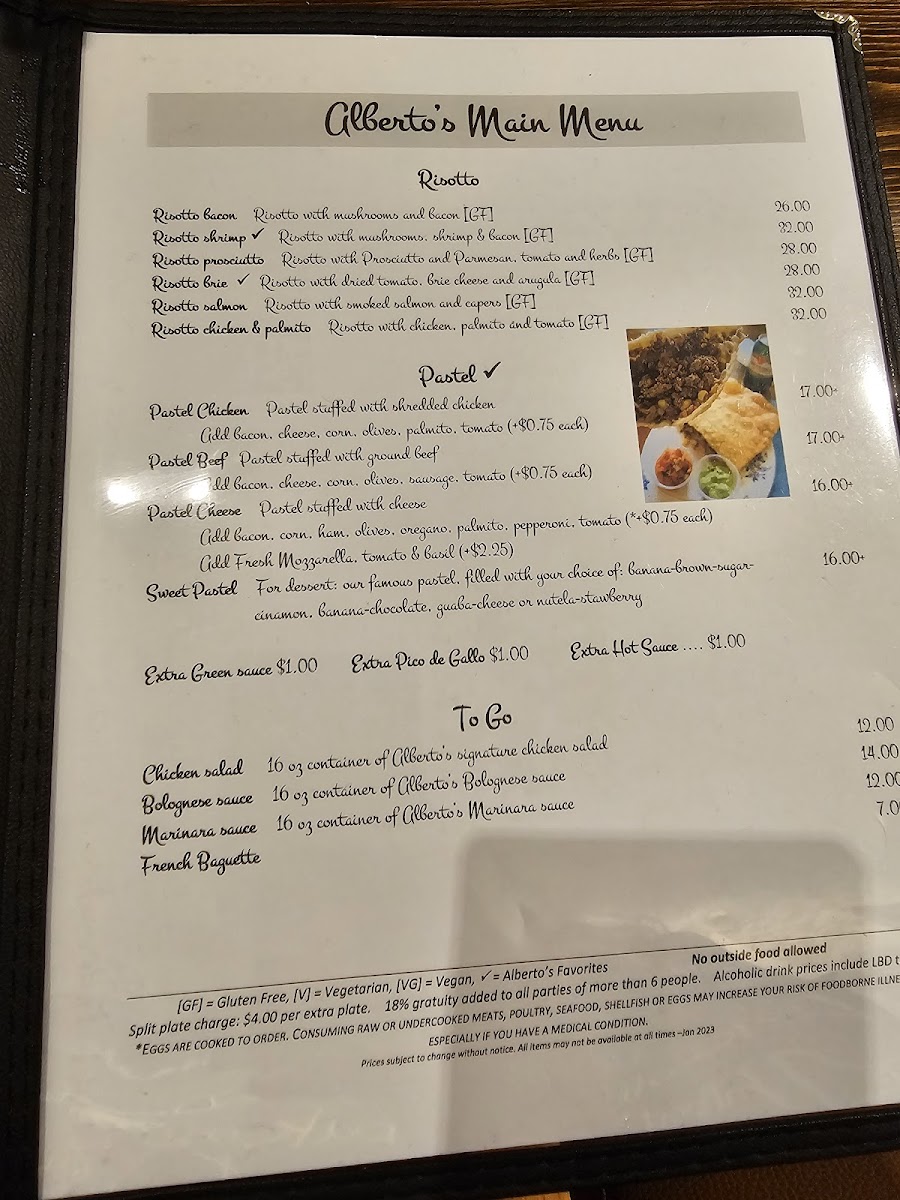 Alberto's Main Menu
Risotto
Risotto bacon Risotto with mushrooms and bacon [GF] 26.00
Risotto shrimp ✓ Risotto with mushrooms, shrimp & bacon [GF] 32.00
Risotto prosciutto Risotto with Prosciutto and Parmesan, tomato and herbs [GF] 28.00
Risotto brie ✓ Risotto with dried tomato, brie cheese and arugula [GF] 28.00
Risotto salmon Risotto with smoked salmon and capers [GF] 32.00
Risotto chicken & palmito Risotto with chicken, palmito and tomato [GF] 32.00
Pastel ✓
Pastel Chicken Pastel stuffed with shredded chicken 17.00+
Add bacon, cheese, corn, olives, palmito, tomato (+$0.75 each)
Pastel Beef Pastel stuffed with ground beef 17.00+
Add bacon, cheese, corn, olives, sausage, tomato (+$0.75 each)
Pastel Cheese Pastel stuffed with cheese 16.00+
Add bacon, corn, ham, olives, oregano, palmito, pepperoni, tomato (*+$0.75 each)
Add Fresh Mozzarella, tomato & basil (+$2.25)
Sweet Pastel For dessert: our famous pastel, filled with your choice of: banana-brown-sugar- 16.00+
cinamon, banana-chocolate, guaba-cheese or nutela-stawberry
Extra Green sauce $1.00 Extra Pico de Gallo $1.00 Extra Hot Sauce .... $1.00
To Go
Chicken salad 16 oz container of Alberto's signature chicken salad 12.00
Bolognese sauce 16 oz container of Alberto's Bolognese sauce 14.00
Marinara sauce 16 oz container of Alberto's Marinara sauce 12.00
French Baguette 7.0
No outside food allowed
[GF] = Gluten Free, [V] = Vegetarian, [VG] = Vegan, ✓ = Alberto's Favorites
Split plate charge: $4.00 per extra plate. 18% gratuity added to all parties of more than 6 people. Alcoholic drink prices include LBD t
*EGGS ARE COOKED TO ORDER. CONSUMING RAW OR UNDERCOOKED MEATS, POULTRY, SEAFOOD, SHELLFISH OR EGGS MAY INCREASE YOUR RISK OF FOODBORNE ILLNE
ESPECIALLY IF YOU HAVE A MEDICAL CONDITION.
Prices subject to change without notice. All items may not be available at all times –Jan 2023